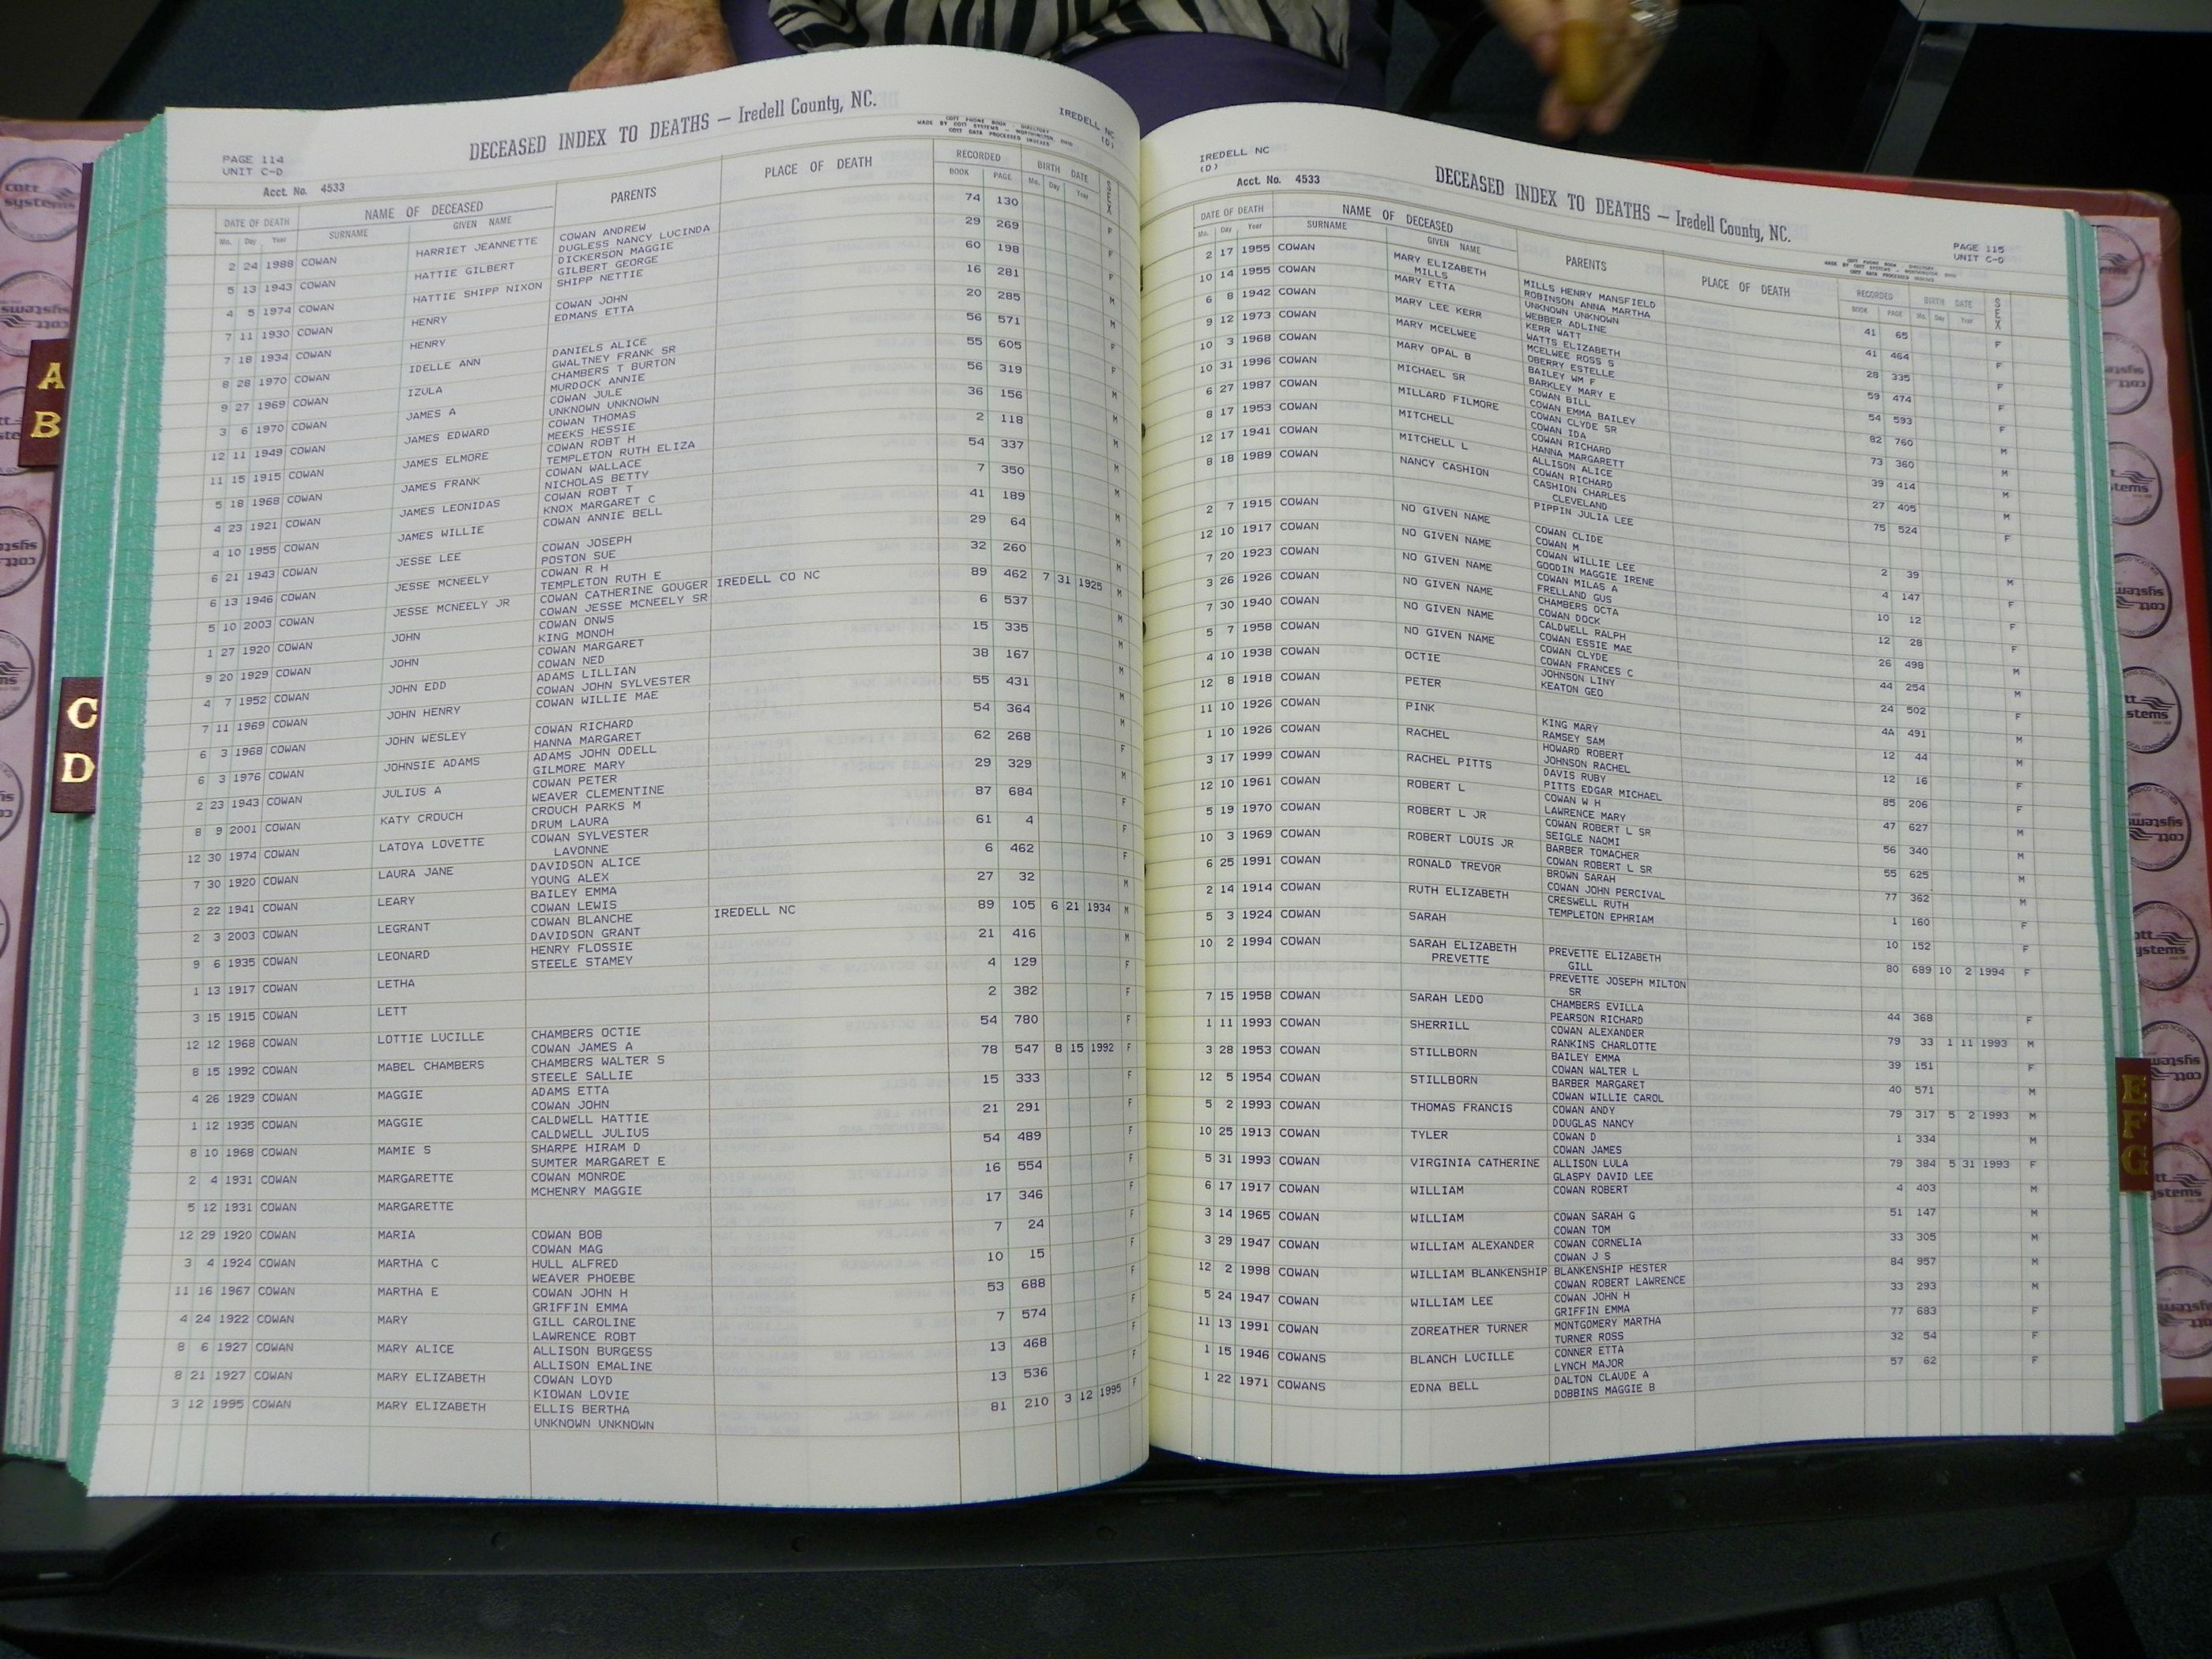 PAGE 114
UNIT C-D
DECEASED INDEX TO DEATHS — Iredell County, NC.
COTT PHONE BOOK - DIRECTORY
MADE BY COTT SYSTEMS - WORTHINGTON OHIO
COTT DATA PROCESSED INDEXES
IREDELL NC
(D)
Acct. No. 4533
DATE OF DEATH NAME OF DECEASED PARENTS PLACE OF DEATH RECORDED BIRTH DATE SEX
Mo. Day Year SURNAME GIVEN NAME BOOK PAGE Mo. Day Year
2 24 1988 COWAN HARRIET JEANNETTE COWAN ANDREW 74 130 F
DUGLESS NANCY LUCINDA
5 13 1943 COWAN HATTIE GILBERT DICKERSON MAGGIE 29 269 F
GILBERT GEORGE
4 5 1974 COWAN HATTIE SHIPP NIXON SHIPP NETTIE 60 198 F
7 11 1930 COWAN HENRY COWAN JOHN 16 281 M
EDMANS ETTA
7 18 1934 COWAN HENRY 20 285 M
8 28 1970 COWAN IDELLE ANN DANIELS ALICE 56 571 F
GWALTNEY FRANK SR
9 27 1969 COWAN IZULA CHAMBERS T BURTON 55 605 F
MURDOCK ANNIE
3 6 1970 COWAN JAMES A COWAN JULE 56 319 M
UNKNOWN UNKNOWN
12 11 1949 COWAN JAMES EDWARD COWAN THOMAS 36 156 M
MEEKS HESSIE
11 15 1915 COWAN JAMES ELMORE COWAN ROBT H 2 118 M
TEMPLETON RUTH ELIZA
5 18 1968 COWAN JAMES FRANK COWAN WALLACE 54 337 M
NICHOLAS BETTY
4 23 1921 COWAN JAMES LEONIDAS COWAN ROBT T 7 350 M
KNOX MARGARET C
4 10 1955 COWAN JAMES WILLIE COWAN ANNIE BELL 41 189 M
6 21 1943 COWAN JESSE LEE COWAN JOSEPH 29 64 M
POSTON SUE
6 13 1946 COWAN JESSE MCNEELY COWAN R H 32 260 M
TEMPLETON RUTH E
5 10 2003 COWAN JESSE MCNEELY JR COWAN CATHERINE GOUGER IREDELL CO NC 89 462 7 31 1925 M
COWAN JESSE MCNEELY SR
1 27 1920 COWAN JOHN COWAN ONWS 6 537 M
KING MONOH
9 20 1929 COWAN JOHN COWAN MARGARET 15 335 M
COWAN NED
4 7 1952 COWAN JOHN EDD ADAMS LILLIAN 38 167 M
COWAN JOHN SYLVESTER
7 11 1969 COWAN JOHN HENRY COWAN WILLIE MAE 55 431 M
6 3 1968 COWAN JOHN WESLEY COWAN RICHARD 54 364 M
HANNA MARGARET
6 3 1976 COWAN JOHNSIE ADAMS ADAMS JOHN ODELL 62 268 F
GILMORE MARY
2 23 1943 COWAN JULIUS A COWAN PETER 29 329 M
WEAVER CLEMENTINE
8 9 2001 COWAN KATY CROUCH CROUCH PARKS M 87 684 F
DRUM LAURA
12 30 1974 COWAN LATOYA LOVETTE COWAN SYLVESTER 61 4 F
LAVONNE
7 30 1920 COWAN LAURA JANE DAVIDSON ALICE 6 462 F
YOUNG ALEX
2 22 1941 COWAN LEARY BAILEY EMMA 27 32 M
COWAN LEWIS
2 3 2003 COWAN LEGRANT COWAN BLANCHE IREDELL NC 89 105 6 21 1934 M
DAVIDSON GRANT
9 6 1935 COWAN LEONARD HENRY FLOSSIE 21 416 M
STEELE STAMEY
1 13 1917 COWAN LETHA 4 129 F
3 15 1915 COWAN LETT 2 382 F
12 12 1968 COWAN LOTTIE LUCILLE CHAMBERS OCTIE 54 780 F
COWAN JAMES A
8 15 1992 COWAN MABEL CHAMBERS CHAMBERS WALTER S 78 547 8 15 1992 F
STEELE SALLIE
4 26 1929 COWAN MAGGIE ADAMS ETTA 15 333 F
COWAN JOHN
1 12 1935 COWAN MAGGIE CALDWELL HATTIE 21 291 F
CALDWELL JULIUS
8 10 1968 COWAN MAMIE S SHARPE HIRAM D 54 489 F
SUMTER MARGARET E
2 4 1931 COWAN MARGARETTE COWAN MONROE 16 554 F
MCHENRY MAGGIE
5 12 1931 COWAN MARGARETTE 17 346 F
12 29 1920 COWAN MARIA COWAN BOB 7 24 F
COWAN MAG
3 4 1924 COWAN MARTHA C HULL ALFRED 10 15 F
WEAVER PHOEBE
11 16 1967 COWAN MARTHA E COWAN JOHN H 53 688 F
GRIFFIN EMMA
4 24 1922 COWAN MARY GILL CAROLINE 7 574 F
LAWRENCE ROBT
8 6 1927 COWAN MARY ALICE ALLISON BURGESS 13 468 F
ALLISON EMALINE
8 21 1927 COWAN MARY ELIZABETH COWAN LOYD 13 536 F
KIOWAN LOVIE
3 12 1995 COWAN MARY ELIZABETH ELLIS BERTHA 81 210 3 12 1995 F
UNKNOWN UNKNOWN
IREDELL NC
(D)
Acct. No. 4533
DECEASED INDEX TO DEATHS — Iredell County, NC.
PAGE 115
UNIT C-D
COTT PHONE BOOK - DIRECTORY
MADE BY COTT SYSTEMS - WORTHINGTON OHIO
COTT DATA PROCESSED INDEXES
DATE OF DEATH NAME OF DECEASED PARENTS PLACE OF DEATH RECORDED BIRTH DATE SEX
Mo. Day Year SURNAME GIVEN NAME BOOK PAGE Mo. Day Year
2 17 1955 COWAN MARY ELIZABETH MILLS HENRY MANSFIELD 41 65 F
MILLS ROBINSON ANNA MARTHA
10 14 1955 COWAN MARY ETTA UNKNOWN UNKNOWN 41 464 F
WEBBER ADLINE
6 8 1942 COWAN MARY LEE KERR KERR WATT 28 335 F
WATTS ELIZABETH
9 12 1973 COWAN MARY MCELWEE MCELWEE ROSS S 59 474 F
OBERRY ESTELLE
10 3 1968 COWAN MARY OPAL B BAILEY WM F 54 593 F
BARKLEY MARY E
10 31 1996 COWAN MICHAEL SR COWAN BILL 82 760 M
COWAN EMMA BAILEY
6 27 1987 COWAN MILLARD FILMORE COWAN CLYDE SR 73 360 M
COWAN IDA
8 17 1953 COWAN MITCHELL COWAN RICHARD 39 414 M
HANNA MARGARETT
12 17 1941 COWAN MITCHELL L ALLISON ALICE 27 405 M
COWAN RICHARD
8 18 1989 COWAN NANCY CASHION CASHION CHARLES 75 524 F
CLEVELAND
PIPPIN JULIA LEE
2 7 1915 COWAN NO GIVEN NAME COWAN CLIDE 2 39 M
COWAN M
12 10 1917 COWAN NO GIVEN NAME COWAN WILLIE LEE 4 147 F
GOODIN MAGGIE IRENE
7 20 1923 COWAN NO GIVEN NAME COWAN MILAS A 10 12 F
FRELLAND GUS
3 26 1926 COWAN NO GIVEN NAME CHAMBERS OCTA 12 28 F
COWAN DOCK
7 30 1940 COWAN NO GIVEN NAME CALDWELL RALPH 26 498 M
COWAN ESSIE MAE
5 7 1958 COWAN NO GIVEN NAME COWAN CLYDE 44 254 M
COWAN FRANCES C
4 10 1938 COWAN OCTIE JOHNSON LINY 24 502 F
KEATON GEO
12 8 1918 COWAN PETER 4A 491 M
11 10 1926 COWAN PINK KING MARY 12 44 M
RAMSEY SAM
1 10 1926 COWAN RACHEL HOWARD ROBERT 12 16 F
JOHNSON RACHEL
3 17 1999 COWAN RACHEL PITTS DAVIS RUBY 85 206 F
PITTS EDGAR MICHAEL
12 10 1961 COWAN ROBERT L COWAN W H 47 627 M
LAWRENCE MARY
5 19 1970 COWAN ROBERT L JR COWAN ROBERT L SR 56 340 M
SEIGLE NAOMI
10 3 1969 COWAN ROBERT LOUIS JR BARBER TOMACHER 55 625 M
COWAN ROBERT L SR
6 25 1991 COWAN RONALD TREVOR BROWN SARAH 77 362 M
COWAN JOHN PERCIVAL
2 14 1914 COWAN RUTH ELIZABETH CRESWELL RUTH 1 160 F
TEMPLETON EPHRIAM
5 3 1924 COWAN SARAH 10 152 F
10 2 1994 COWAN SARAH ELIZABETH PREVETTE ELIZABETH 80 689 10 2 1994 F
PREVETTE GILL
PREVETTE JOSEPH MILTON
SR
7 15 1958 COWAN SARAH LEDO CHAMBERS EVILLA 44 368 F
PEARSON RICHARD
1 11 1993 COWAN SHERRILL COWAN ALEXANDER 79 33 1 11 1993 M
RANKINS CHARLOTTE
3 28 1953 COWAN STILLBORN BAILEY EMMA 39 151 F
COWAN WALTER L
12 5 1954 COWAN STILLBORN BARBER MARGARET 40 571 M
COWAN WILLIE CAROL
5 2 1993 COWAN THOMAS FRANCIS COWAN ANDY 79 317 5 2 1993 M
DOUGLAS NANCY
10 25 1913 COWAN TYLER COWAN D 1 334 M
COWAN JAMES
5 31 1993 COWAN VIRGINIA CATHERINE ALLISON LULA 79 384 5 31 1993 F
GLASPY DAVID LEE
6 17 1917 COWAN WILLIAM COWAN ROBERT 4 403 M
3 14 1965 COWAN WILLIAM COWAN SARAH G 51 147 M
COWAN TOM
3 29 1947 COWAN WILLIAM ALEXANDER COWAN CORNELIA 33 305 M
COWAN J S
12 2 1998 COWAN WILLIAM BLANKENSHIP BLANKENSHIP HESTER 84 957 M
COWAN ROBERT LAWRENCE
5 24 1947 COWAN WILLIAM LEE COWAN JOHN H 33 293 M
GRIFFIN EMMA
11 13 1991 COWAN ZOREATHER TURNER MONTGOMERY MARTHA 77 683 F
TURNER ROSS
1 15 1946 COWANS BLANCH LUCILLE CONNER ETTA 32 54 F
LYNCH MAJOR
1 22 1971 COWANS EDNA BELL DALTON CLAUDE A 57 62 F
DOBBINS MAGGIE B
A
B
C
D
E
F
G
cott
systems